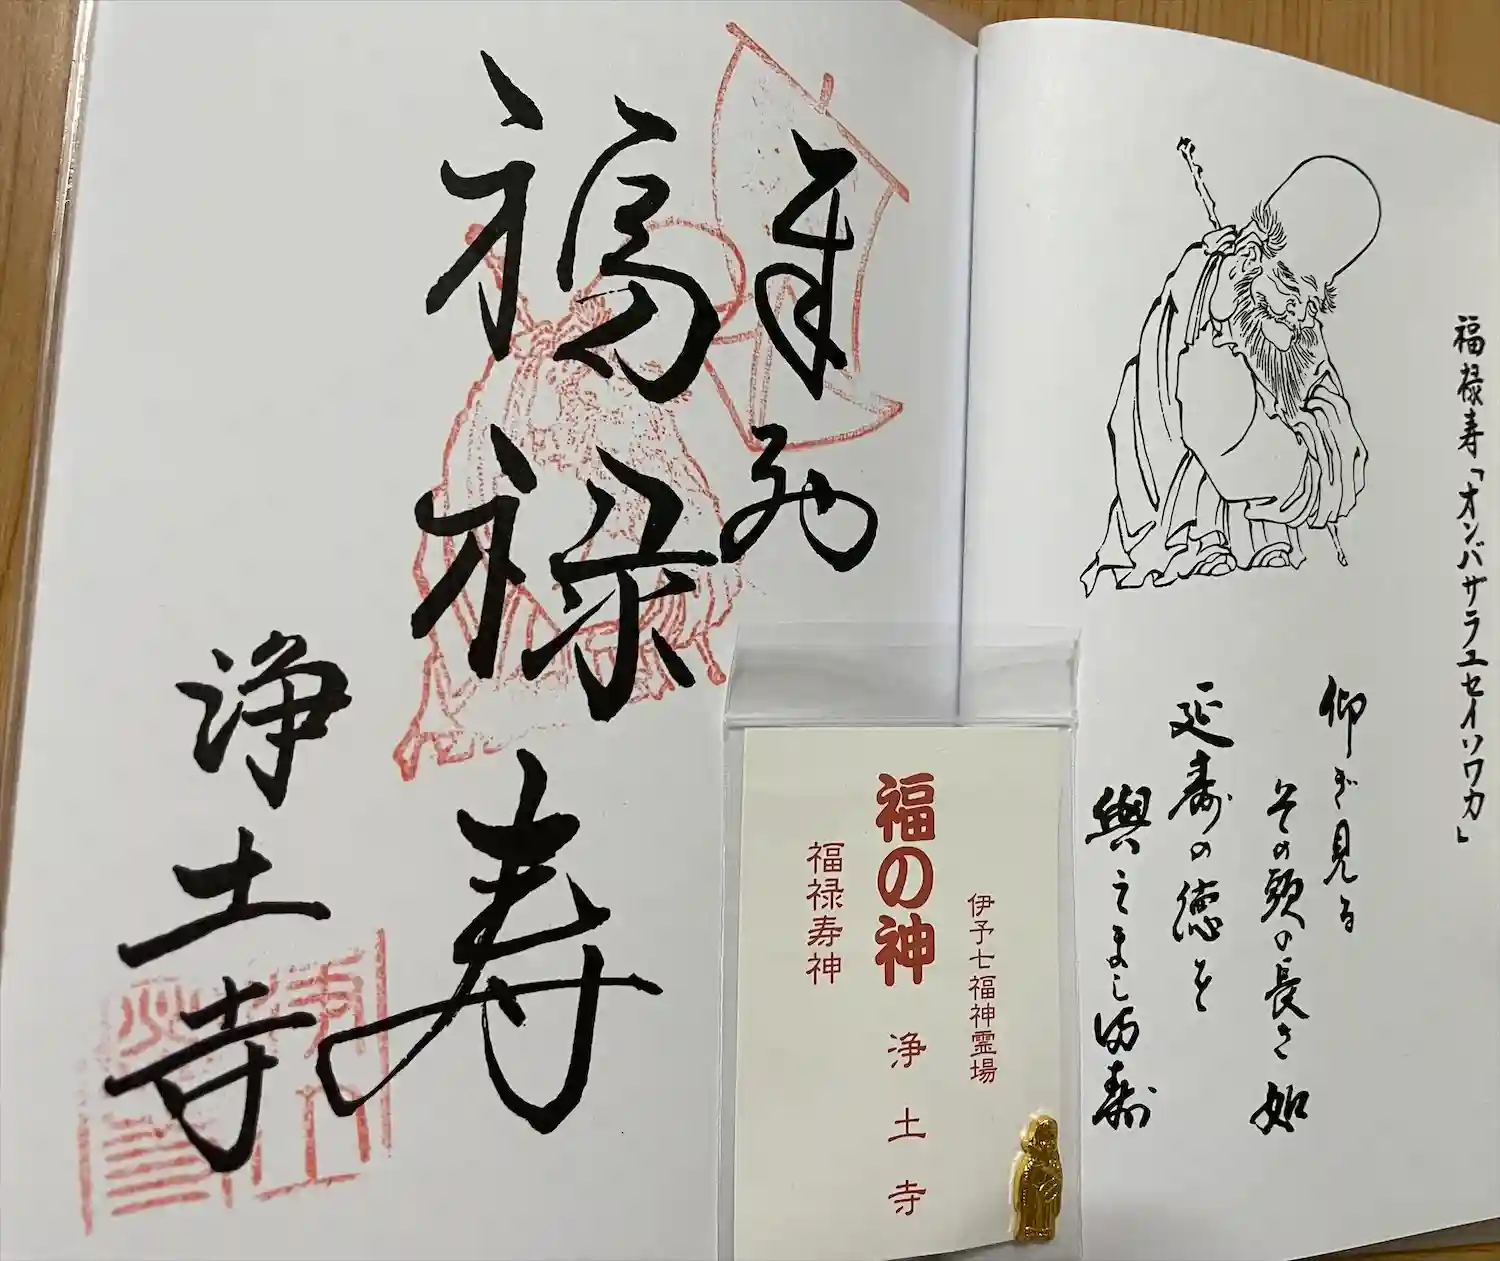 福禄寿「オンバザラユセイソワカ」
仰ぎ見る
その頭の長き如
延寿の徳を
與えまし福寿
奉拝
福禄寿
浄土寺
伊予七福神霊場
福の神 浄土寺
福禄寿神